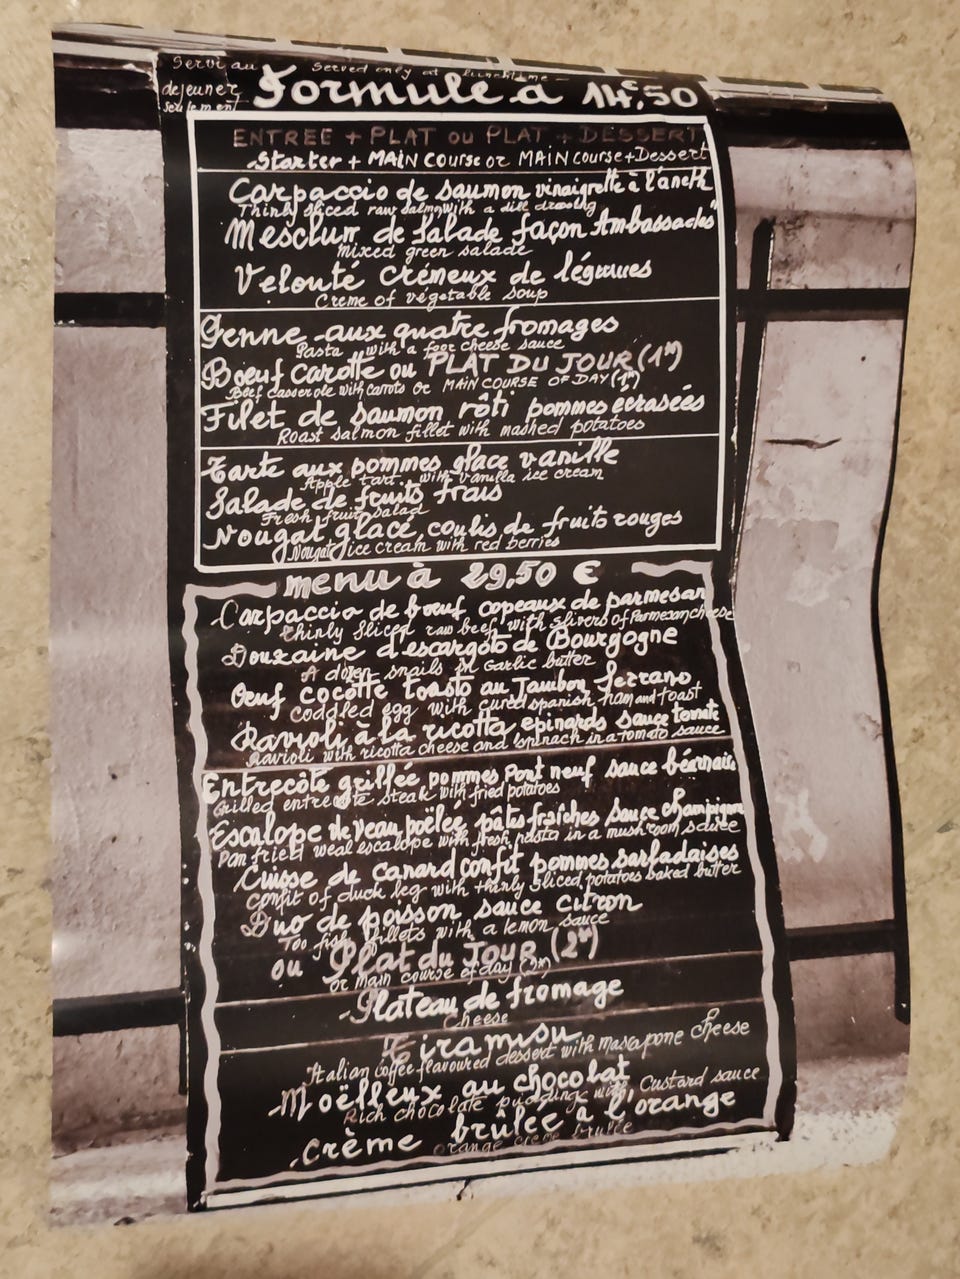 Servi au
dejeuner
seulement
Served only at lunchtime
Formule à 14€,50
ENTREE + PLAT OU PLAT + DESSERT
Starter + MAIN COURSE or MAIN COURSE + Dessert
Carpaccio de saumon vinaigrette à l'aneth
Thinly sliced raw salmon with a dill dressing
Mesclun de salade façon Ambassades
mixed green salade
Velouté Crémeux de légumes
Creme of vegetable soup
Penne aux quatre fromages
Pasta with a foor cheese sauce
Boeuf carotte ou PLAT DU JOUR (1")
Beef casserole with carrots or MAIN COURSE OF DAY (1")
Filet de saumon rôti pommes écrasées
Roast salmon fillet with mashed potatoes
Tarte aux pommes, glace vanille
Apple tart with vanilla ice cream
Salade de fruits frais
Fresh fruit salad
Nougat glacé, coulis de fruits rouges
Nougat ice cream with red berries
menu à 29,50 €
Carpaccio de boeuf copeaux de parmesan
thinly sliced raw beef, with slivers of Parmezan cheese
Douzaine d'escargots de Bourgogne
A dozen snails in Garlic butter
Oeuf cocotte toasto au Jambon Serrano
coddled egg with cured spanish ham and toast
Ravioli à la ricotta epinards sauce tomate
Ravioli with ricotta cheese and spinach in a tomato sauce
Entrecôte grillée pommes Pont neuf sauce béarnaise
Grilled entrecote steak with fried potatoes
Escalope de veau poêlée, pâtes fraîches sauce champignon
Pan fried weal escalope with fresh pasta in a mushroom sauce
Cuisse de canard confit pommes sarladaises
Confit of duck leg with thinly sliced potatoes baked butter
Duo de poisson sauce citron
Too fish fillets with a lemon sauce
ou Plat du JOUR (2")
or main course of day (2")
Plateau de fromage
Cheese
Tiramisu
Italian coffee flavoured dessert with mascapone cheese
Moëlleux au chocolat
Rich chocolate pudding with custard sauce
Crème brûlée à l'orange
orange creme brulée